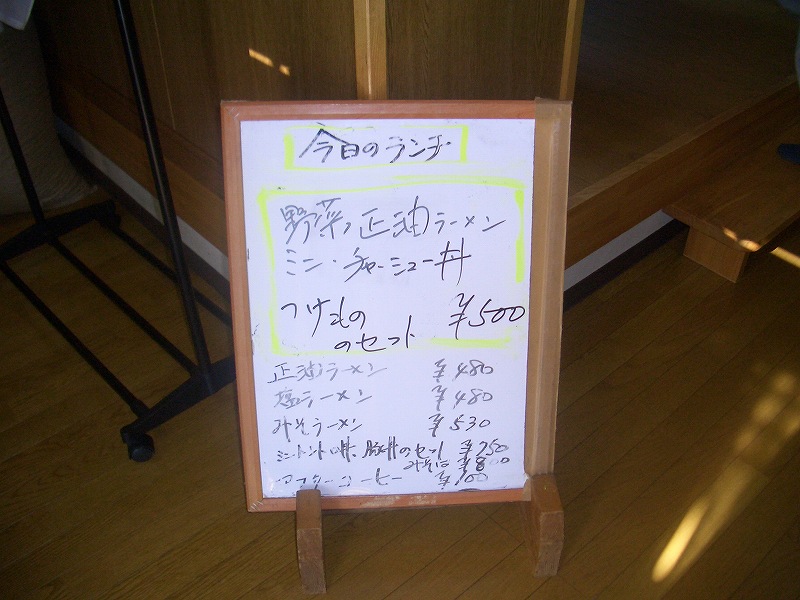 今日のランチ
野菜正油ラーメン
ミニ・チャーシュー丼
つけもの
のセット ¥500
正油ラーメン ¥480
塩ラーメン ¥480
みそラーメン ¥530
豚丼のセット ¥750
みそは ¥800
コーヒー ¥100